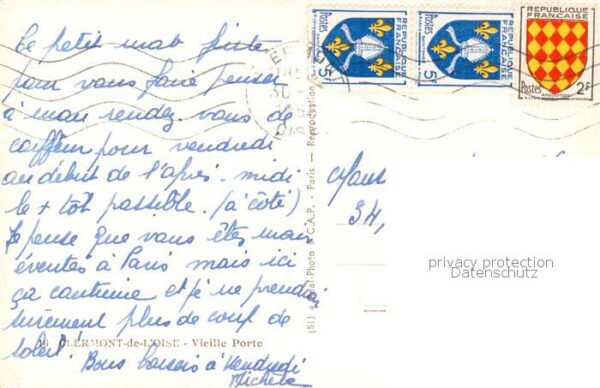 Ce petit mot juste
pour vous faire penser
à mon rendez-vous de
coiffeur pour vendredi
au début de l'après-midi
le + tôt possible. (à côté)
Je pense que vous êtes moins
éventés à Paris mais ici
ça continue et je ne prendrai
sûrement plus de coup de
soleil!
Bons baisers à vendredi
Michèle
18 CLERMONT-de-L'OISE - Vieille Porte
(51) Réal-Photo C.A.P. - Paris - Reproduction
Postes
5F
REPUBLIQUE FRANÇAISE
Postes
5F
REPUBLIQUE FRANÇAISE
REPUBLIQUE
FRANÇAISE
Postes
ANGOUMOIS
2F
34,
privacy protection
Datenschutz